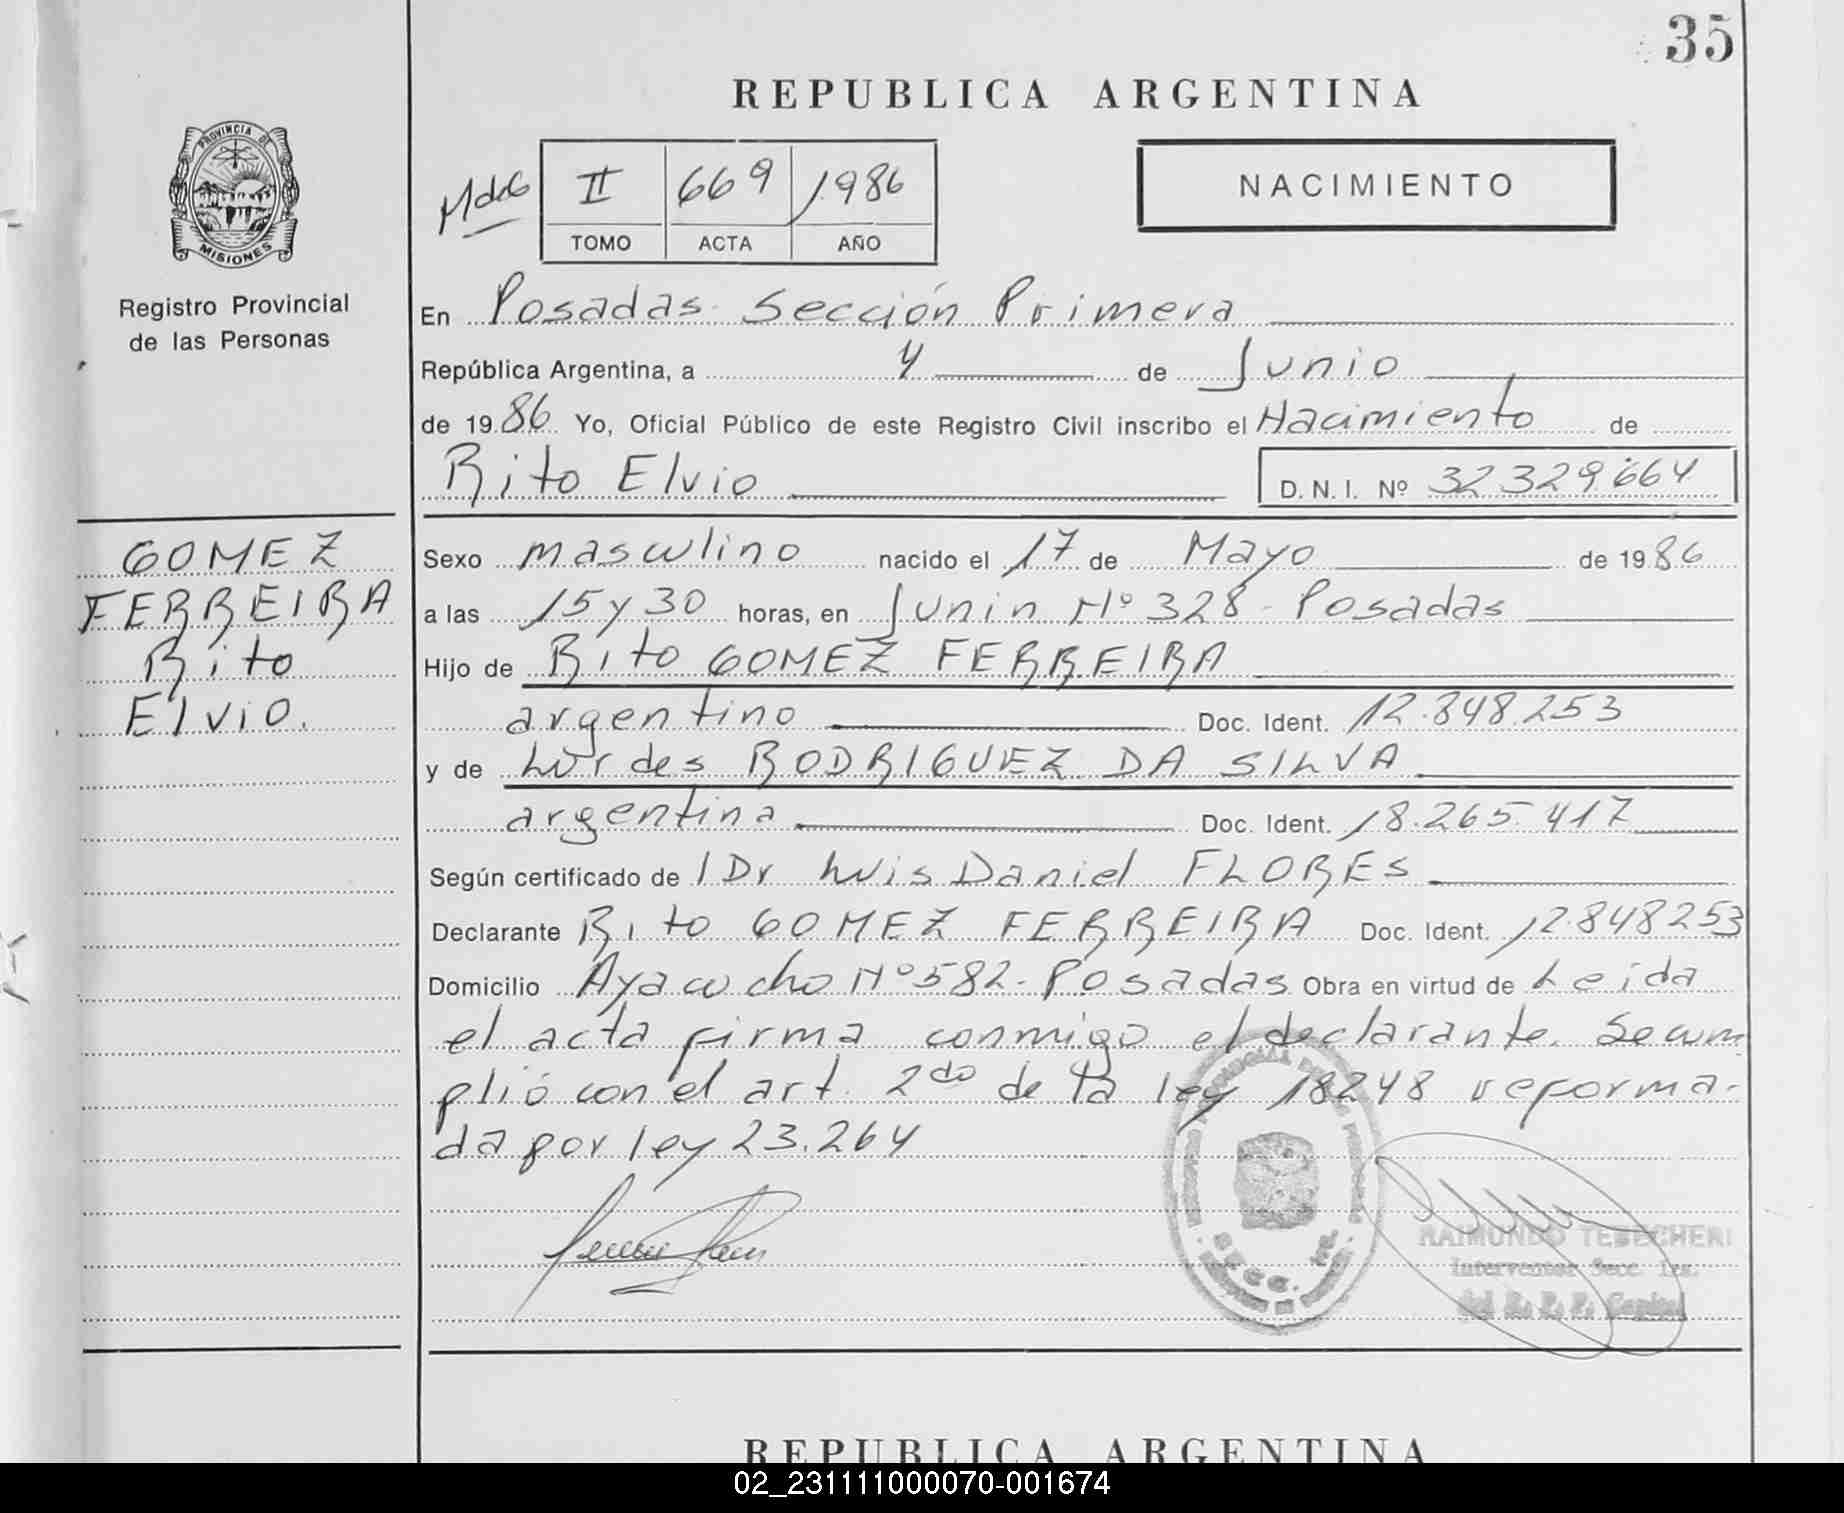 35
REPUBLICA ARGENTINA
PROVINCIA DE
MISIONES
Registro Provincial
de las Personas
II 669 1986
TOMO ACTA AÑO
NACIMIENTO
En Posadas. Sección Primera
República Argentina, a 4 de Junio
de 1986 Yo, Oficial Público de este Registro Civil inscribo el Nacimiento de
Rito Elvio D. N. I. Nº 32.329.664
GOMEZ
FERREIRA
Rito
Elvio.
Sexo masculino nacido el 17 de Mayo de 1986
a las 15 y 30 horas, en Junin Nº 328 - Posadas
Hijo de Rito GOMEZ FERREIRA
argentino Doc. Ident. 12.848.253
y de Lurdes RODRIGUEZ DA SILVA
argentina Doc. Ident. 18.265.417
Según certificado de l Dr Luis Daniel FLORES
Declarante Rito GOMEZ FERREIRA Doc. Ident. 12.848253
Domicilio Ayacucho Nº 582 - Posadas Obra en virtud de Leida
el acta firma conmigo el declarante. Se cum
plió con el art. 2do de la ley 18248 reforma-
da por ley 23.264
RAIMUNDO TEBECHERI
Interventor Secc. 1ra.
REPUBLICA ARGENTINA
02_231111000070-001674